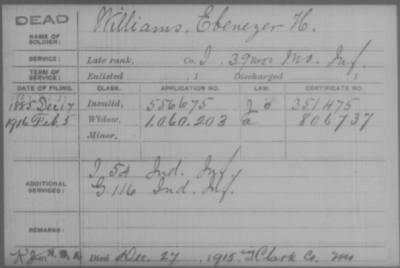 DEAD
Williams, Ebenezer H.
NAME OF SOLDIER:
SERVICE: Late rank, Co. I, 39 Mo. Inf.
TERM OF SERVICE: Enlisted , 1 Discharged , 1
DATE OF FILING. CLASS. APPLICATION NO. LAW. CERTIFICATE NO.
1885 Dec 17 Invalid, 556675 351475
1916 Feb. 5 Widow, 1.060.203 806737
Minor,
ADDITIONAL SERVICES:
I 54 Ind. Inf.
G 116 Ind. Inf.
REMARKS:
Died Dec. 27, 1915, Clark Co. Mo